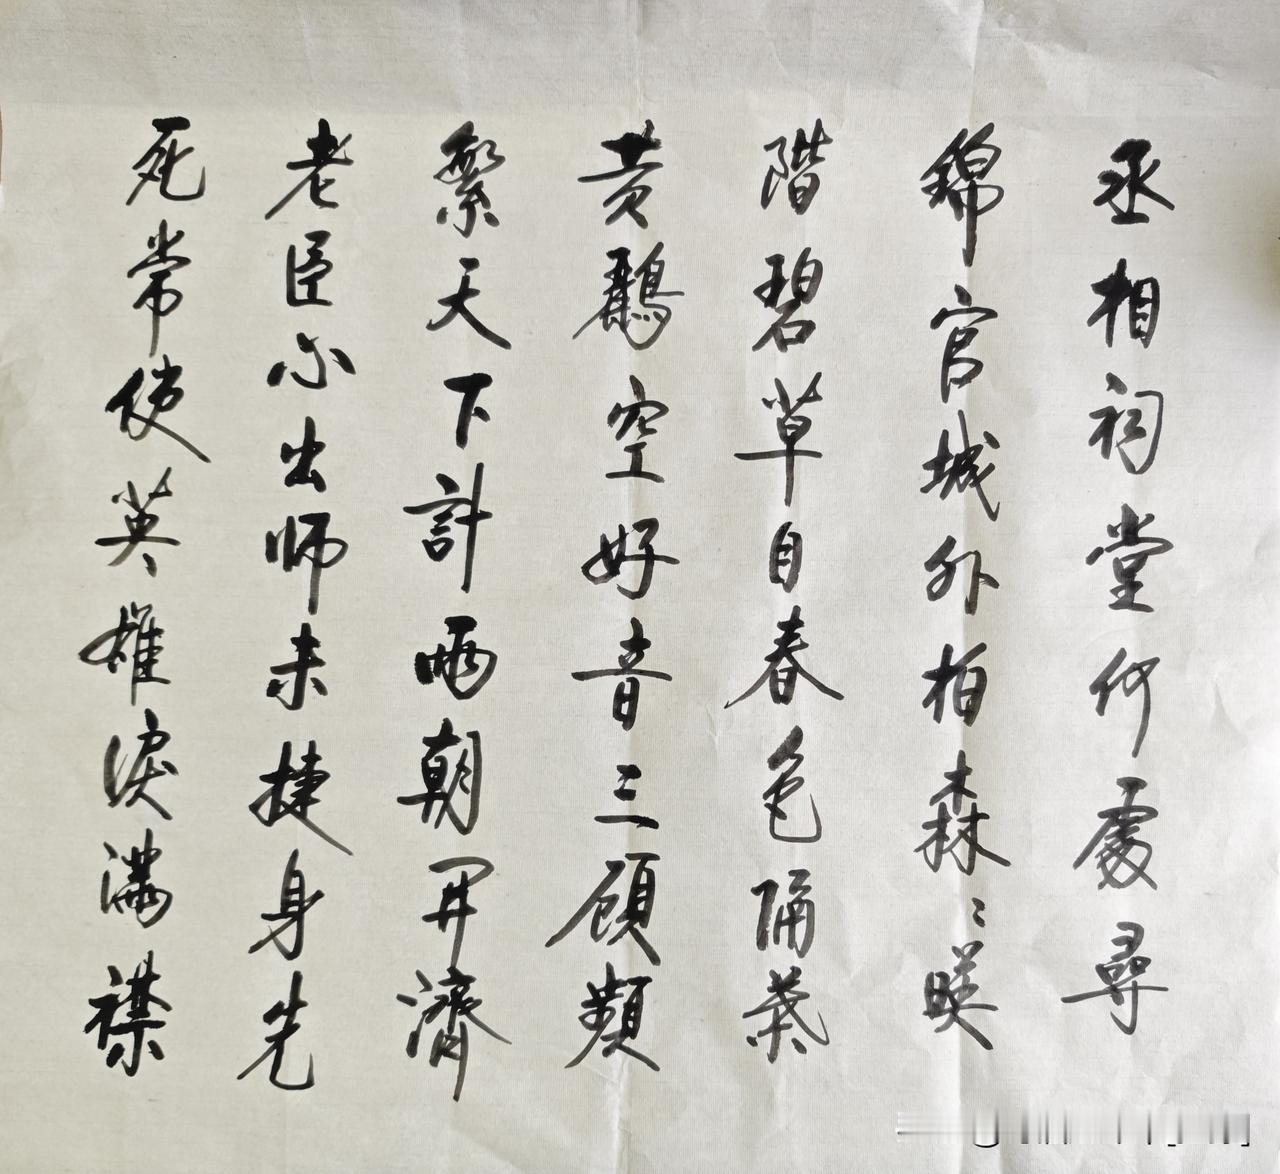 丞相祠堂何處尋
錦官城外柏森〻暎
階碧草自春色隔葉
黃鸝空好音三顧頻
繁天下計兩朝開濟
老臣心出師未捷身先
死常使英雄淚滿襟